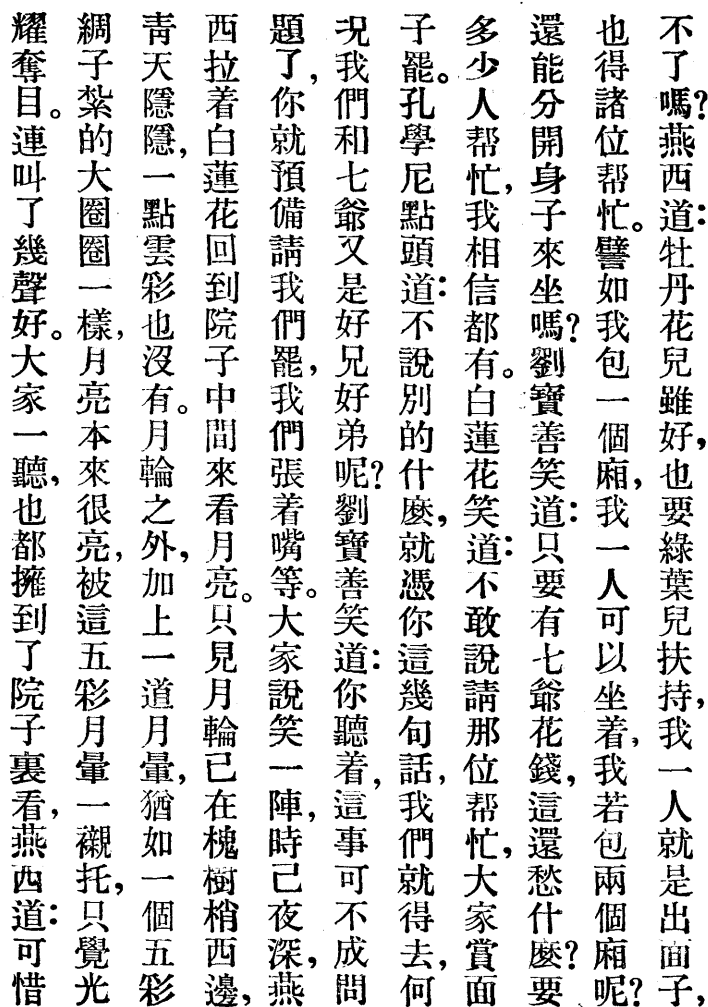 不了嗎?燕西道:牡丹花兒雖好,也要綠葉兒扶持,我一人就是出面子,
也得諸位帮忙。譬如我包一個廂,我一人可以坐着,我若包兩個廂呢?
還能分開身子來坐嗎?劉寶善笑道:只要有七爺花錢,這還愁什麽?要
多少人帮忙,我相信都有。白蓮花笑道:不敢說請那位帮忙,大家賞面
子罷。孔學尼點頭道:不說別的什麽,就憑你這幾句話,我們就得去,何
况我們和七爺又是好兄好弟呢?劉寶善笑道:你聽着,這事可不成問
題了,你就預備請我們罷,我們張着嘴等。大家說笑一陣,時已夜深,燕
西拉着白蓮花回到院子中間來看月亮。只見月輪已在槐樹梢西邊,
靑天隱隱,一點雲彩也沒有。月輪之外,加上一道月暈,猶如一個五彩
綢子紮的大圈圈一樣,月亮本來很亮,被這五彩月暈一襯托,只覺光
耀奪目。連叫了幾聲好。大家一聽,也都擁到了院子裏看,燕西道:可惜